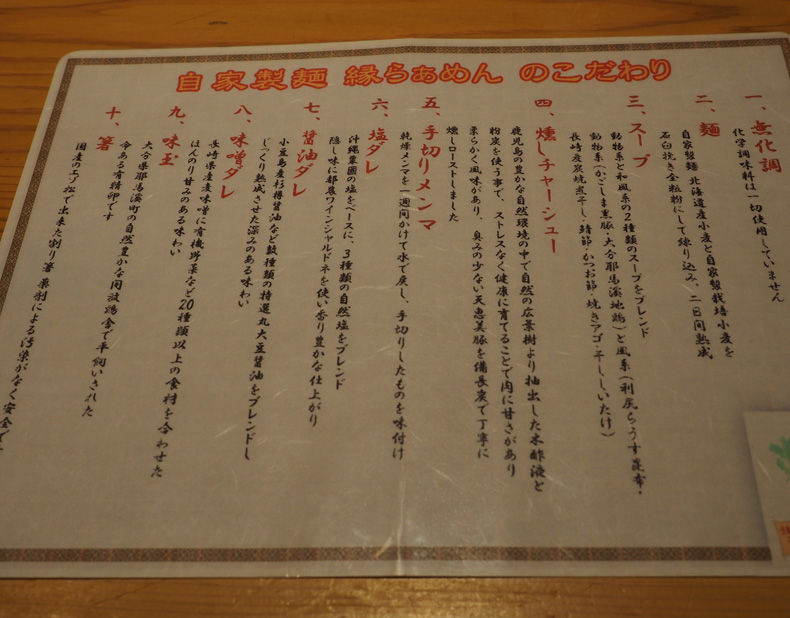 自家製麺 縁らぁめん のこだわり
一、無化調
化学調味料は一切使用していません
二、麺
自家製麺 北海道産小麦と自家製栽培小麦を
石臼挽き全粒粉にして練り込み、二日間熟成
三、スープ
動物系と和風系の2種類のスープをブレンド
動物系(かごしま黒豚・大分耶馬溪地鶏)と風系(利尻らうす昆布・
長崎産炭焼煮干し・鯖節・かつお節・焼きアゴ・干ししいたけ)
四、燻しチャーシュー
鹿児島の豊かな自然環境の中で自然の広葉樹より抽出した木酢液と
粉炭を使う事で、ストレスなく健康に育てることで肉に甘さがあり
柔らかく風味があり、臭みの少ない天恵美豚を備長炭で丁寧に
燻しローストしました
五、手切りメンマ
乾燥メンマを一週間かけて水で戻し、手切りしたものを味付け
六、塩ダレ
沖縄粟国の塩をベースに、3種類の自然塩をブレンド
隠し味に都農ワインシャルドネを使い香り豊かな仕上がり
七、醤油ダレ
小豆島産杉樽醤油など数種類の特選丸大豆醤油をブレンドし
じっくり熟成させた深みのある味わい
八、味噌ダレ
長崎県産麦味噌に有機野菜など20種類以上の食材を合わせた
ほんのり甘みのある味わい
九、味玉
大分県耶馬溪町の自然豊かな開放鶏舎で平飼いされた
命ある有精卵です
十、箸
国産のエゾ松で出来た割り箸 薬剤による汚染がなく安全で